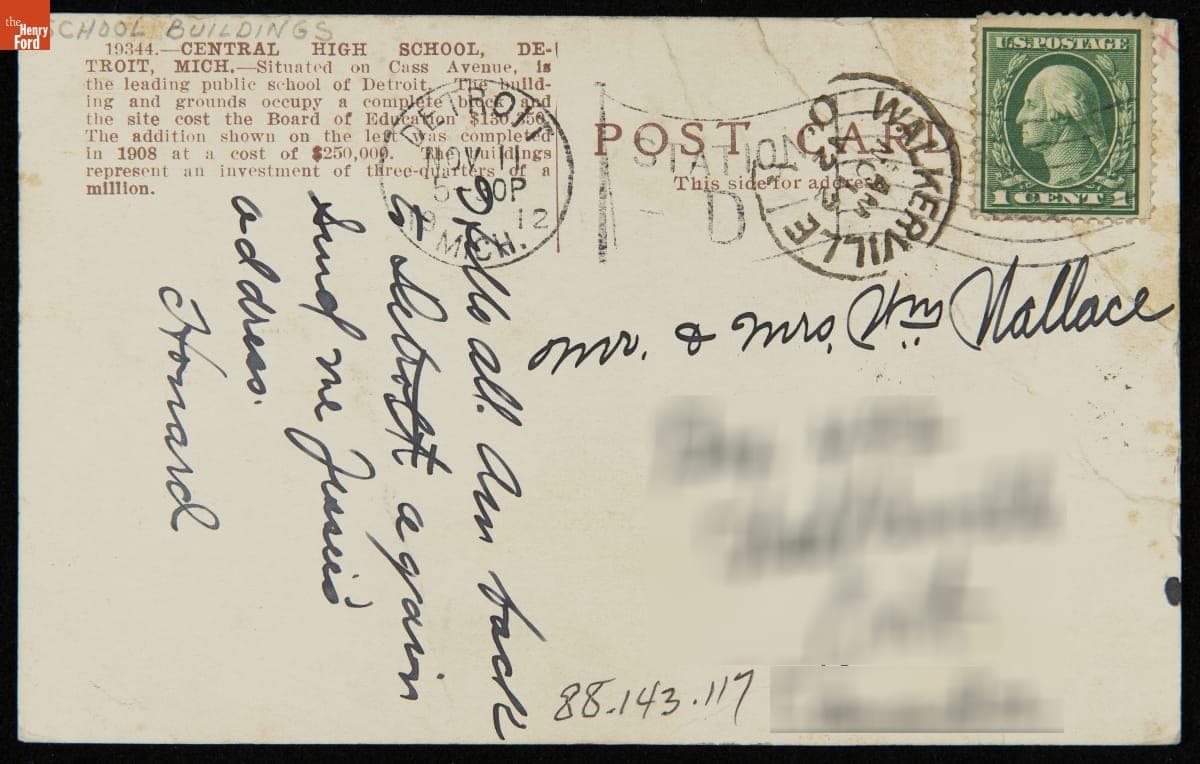 the
Henry
Ford
SCHOOL BUILDINGS
19344.—CENTRAL HIGH SCHOOL, DE-
TROIT, MICH.—Situated on Cass Avenue, is
the leading public school of Detroit. The build-
ing and grounds occupy a complete block and
the site cost the Board of Education
The addition shown on the left was completed
in 1908 at a cost of $250,000. The buildings
represent an investment of three-quarters of a
million.
POST CARD
This side for address
U.S. POSTAGE
1 CENT 1
DETROIT
NOV 11
5 30P
1912
MICH.
STATION
D
WALKERVILLE
Mr. & Mrs. Wm Wallace
Hello all. Am back
to Detroit again
Send me Jessie's
address.
Howard
88.143.117